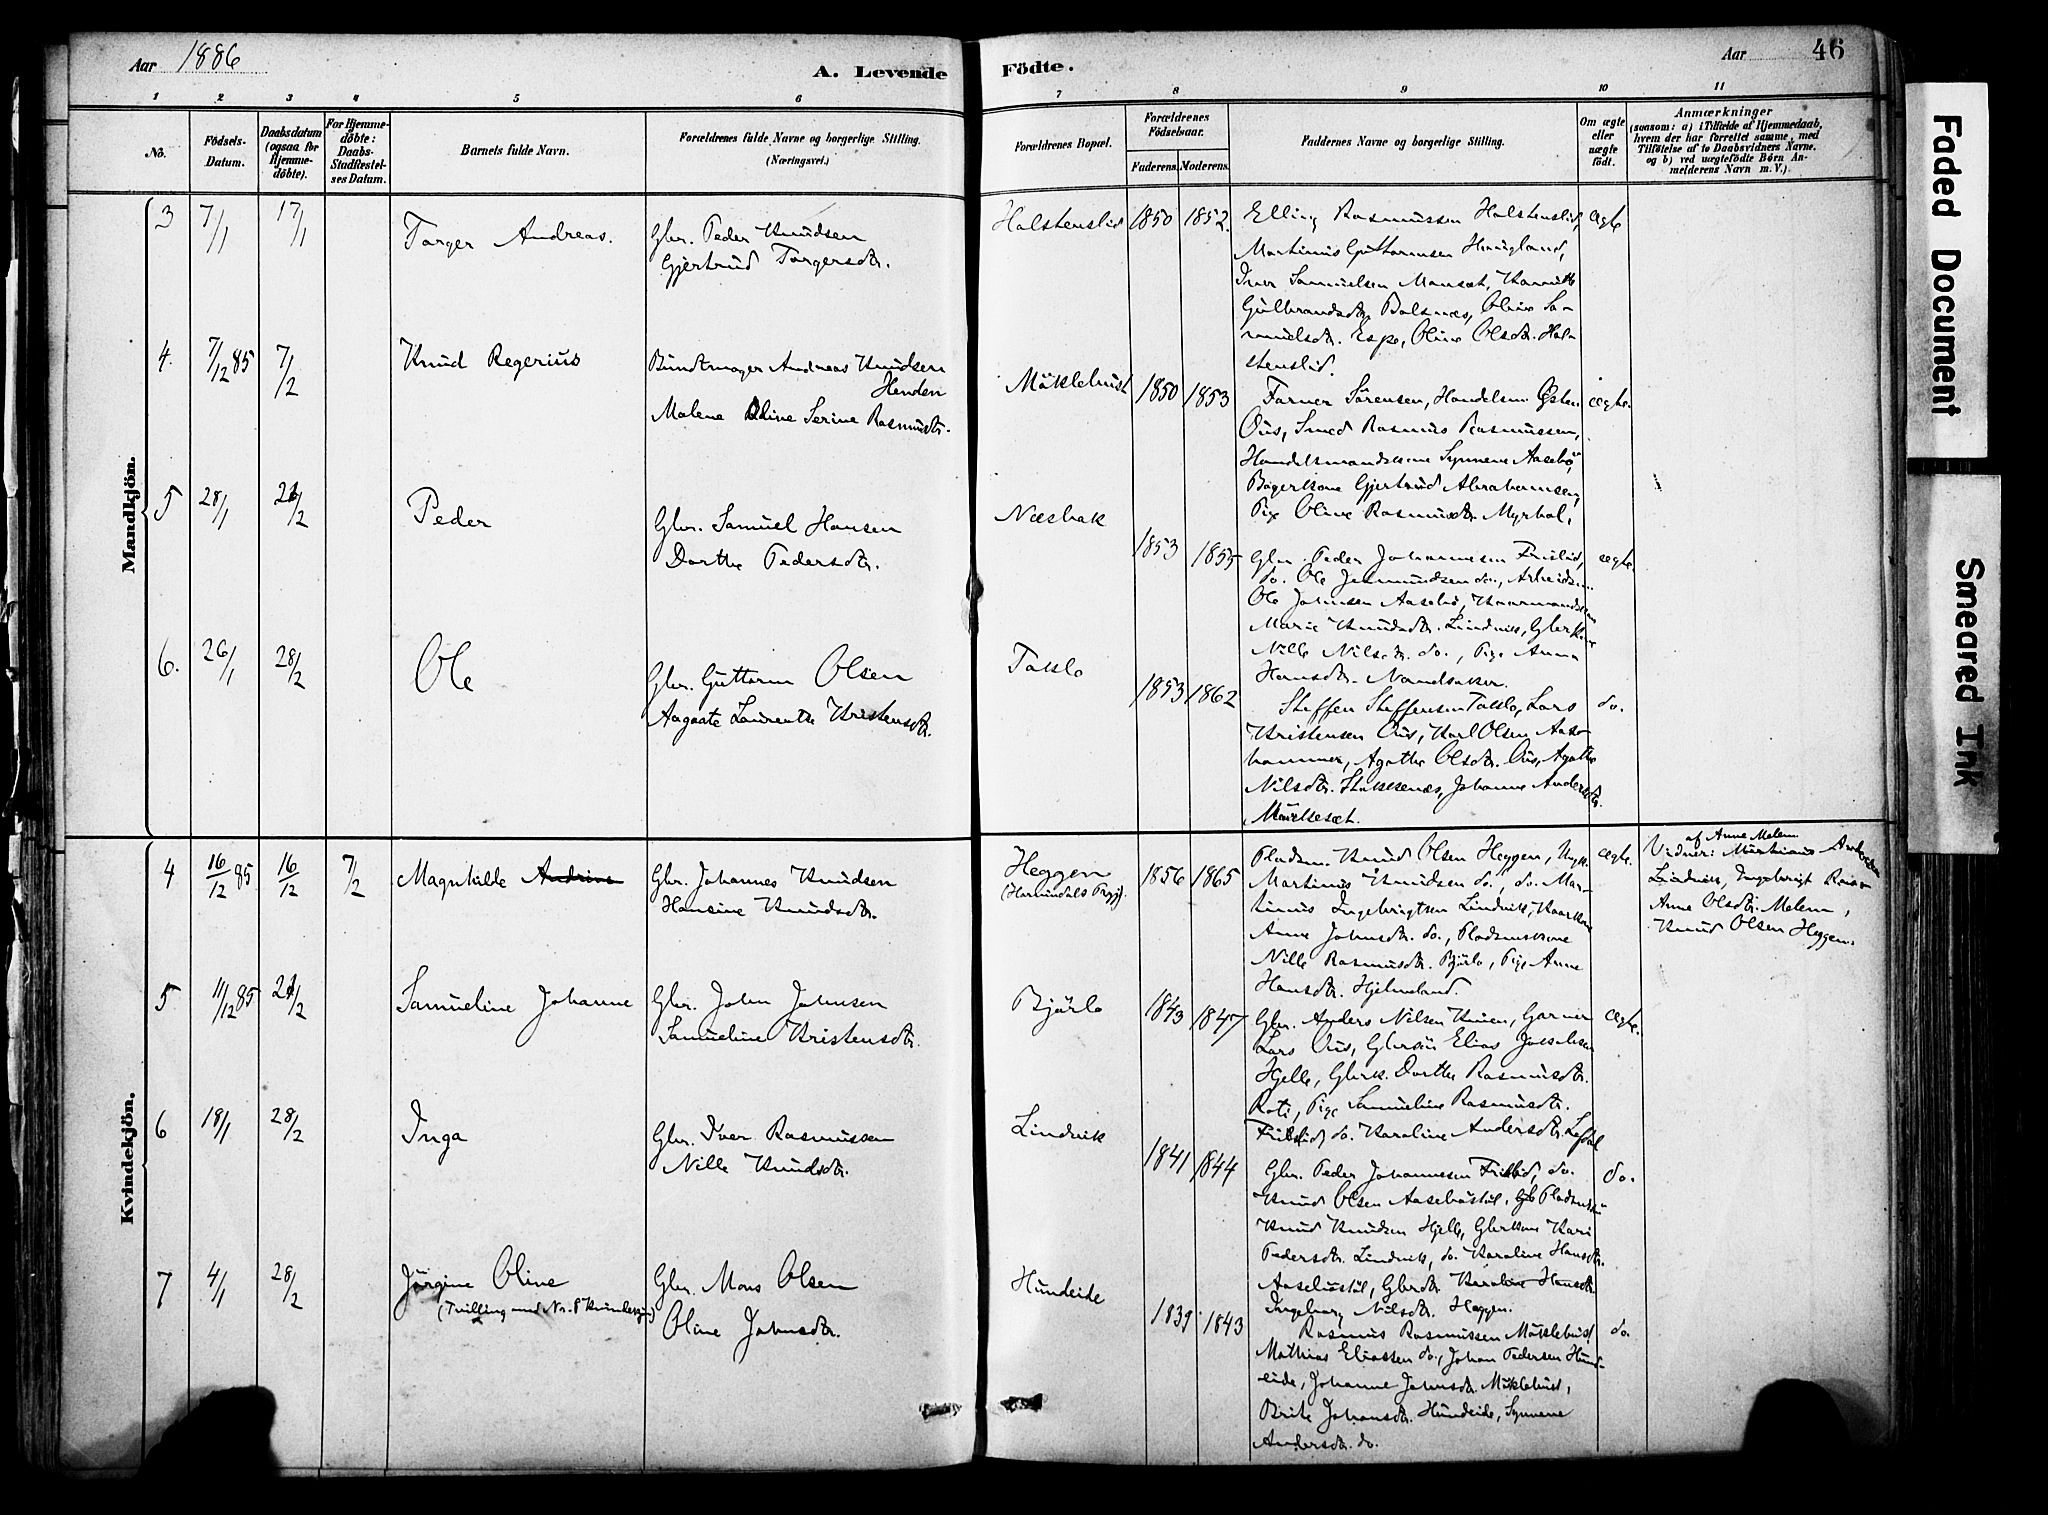 Aar 1886
A. Levende
Födte.
Aar
46
1 2 3 4 5 6 7 8 9 10 11
No.
Födsels-
Datum.
Daabsdatum
(ogsaa for
Hjemme-
döbte).
For Hjemme-
döbte:
Daabs-
Stadfæstel-
ses Datum.
Barnets fulde Navn.
Forældrenes fulde Navne og borgerlige Stilling.
(Næringsvei.)
Forældrenes Bopæl.
Forældrenes
Födselsaar.
Faderens. Moderens.
Faddernes Navne og borgerlige Stilling.
Om ægte
eller
uægte
födt.
Anmærkninger
(saasom: a) i Tilfælde af Hjemmedaab,
hvem der har forrettet samme, med
Tilföielse af to Daabsvidners Navne.
og b) ved uægtefödte Börn An-
melderens Navn m. V.).
Mandkjön.
3 7/1 17/1 Torger Andreas.
Gbr. Peder Knudsen
Gjertrud Torgersdtr.
Holstenslid 1850 1852.
Elling Rasmussen Holstenslid,
Martinus Guttormsen Haugland,
Iver Samuelsen Monsæt,
Gulbrandsdtr. Oline Sa-
muelsdtr. Espe, Oline Olsdtr. Hol-
stenslid.
ægte
4. 7/12 85 7/2 Knud Regerius
Buntmager Andreas Knudsen
Henden
Malene Oline Serine Rasmusdtr.
Möklebust 1850 1853
Farver Sörensen, Handelsm. Østen
Øus, Smed Rasmus Rasmussen,
Handelsmandskone Synneve Aasebö,
Bagerkone Gjertrud Abrahamsen,
Pige Oline Rasmusdtr. Myrhol,
ægte.
5 28/1 21/2 Peder
Gbr. Samuel Hansen
Dorthe Pedersdtr.
Næsbak
1853 1855
Gbr. Peder Johannesen Frislid,
do. Ole Jetmundsen do.,
Ole Johnsen Aasebö,
Marie Knudsdtr. Lindvik, Gbrkone
Nille Nilsdtr. do., Pige Anna
Hansdtr. Navelsaker.
ægte.
6. 26/1 28/2 Ole
Gbr. Guttorm Olsen
Aagaate Laurentse Kristensdtr.
Taklo
1853 1862
Steffen Steffensen Taklo, Lars
Kristensen Øus, Karl Olsen Aase-
hammer, Agathe Olsdtr. Øus, Agathe
Nilsdtr. Stokkenæs, Johanne Andersdtr.
do.
Kvindekjön.
4 16/12 85 16/12 7/2 Magnhilde Andrine
Gbr. Johannes Knudsen
Hansine Knudsdtr.
Heggen
(Hornindals Prgj.)
1856 1865
Pladsm. Knud Olsen Heggen, Ungk.
Martinus Knudsen do., do. Mar-
tinus Ingebrigtsen Lindvik,
Anne Johnsdtr. do., Pladsmkone
Nille Rasmusdtr. Björlo, Pige Anne
Hansdtr. Hjelmeland.
ægte.
af Anne Melem
Vidner: Martinus
Lindvik, Ingebrigt
Anne Olsdtr. Melem,
Knud Olsen Heggen.
5 11/12 85 21/2 Samueline Johanne
Gbr. John Johnsen
Samueline Kristensdtr.
Björlo 1843 1847
Gbr. Anders Nilsen
Lars Øus, Gbrsön Elias Jakobsen
Hjelle, Gbrk. Dorthe Rasmusdtr.
Roti, Pige Samueline Rasmusdtr.
Frislid, do. Karoline Andersdtr. Lofdal
ægte.
6 18/1 28/2 Inga
Gbr. Iver Rasmussen
Nille Knudsdtr.
Lindvik
1841 1844
Gbr. Peder Johannesen Frislid, do.
Knud Olsen Aaseböstöl,
Knud Knudsen Hjelle, Gbrkone Kari
Pedersdtr. Lindvik, do. Karoline Hansdtr.
Aaseböstöl, Gbrdtr. Karoline Hansdtr.
Ingeborg Nilsdtr. Heggen.
do.
7 4/1 28/2 Jörgine Oline
(Tvilling med Nr. 8 Kvindekjön)
Gbr. Mons Olsen
Oline Johnsdtr.
Hundeide
1839 1843
Rasmus Rasmussen Möklebust,
Mathias Eliassen do., Johan Pedersen Hund-
eide, Johanne Johnsdtr. Möklebust,
Brite Johansdtr. Hundeide, Synneve
Andersdtr. do.
do.
Faded Document
Smeared Ink